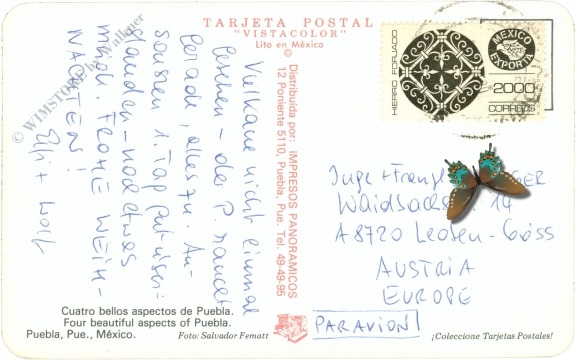 TARJETA POSTAL
"VISTACOLOR"
Lito en México
©
Distribuida por: IMPRESOS PANORAMICOS
12 Poniente 5110, Puebla, Pue. Tel. 49-49-95
© WIMSTORE by Walkner
Vulkane nicht einmal
- der P. rauchet
gerade, alles zu. An-
sonsten 1. Tag
- noch etwas
müde. FROHE WEIH-
NACHTEN!
Elfi + Wolf
HIERRO FORJADO
MEXICO
EXPORTA
2000
CORREOS
Inge + Franz GER
14
A 8720 Leoben-Göss
AUSTRIA
EUROPE
PAR AVION!
Cuatro bellos aspectos de Puebla.
Four beautiful aspects of Puebla.
Puebla, Pue., México.
Foto: Salvador Fematt
¡Coleccione Tarjetas Postales!